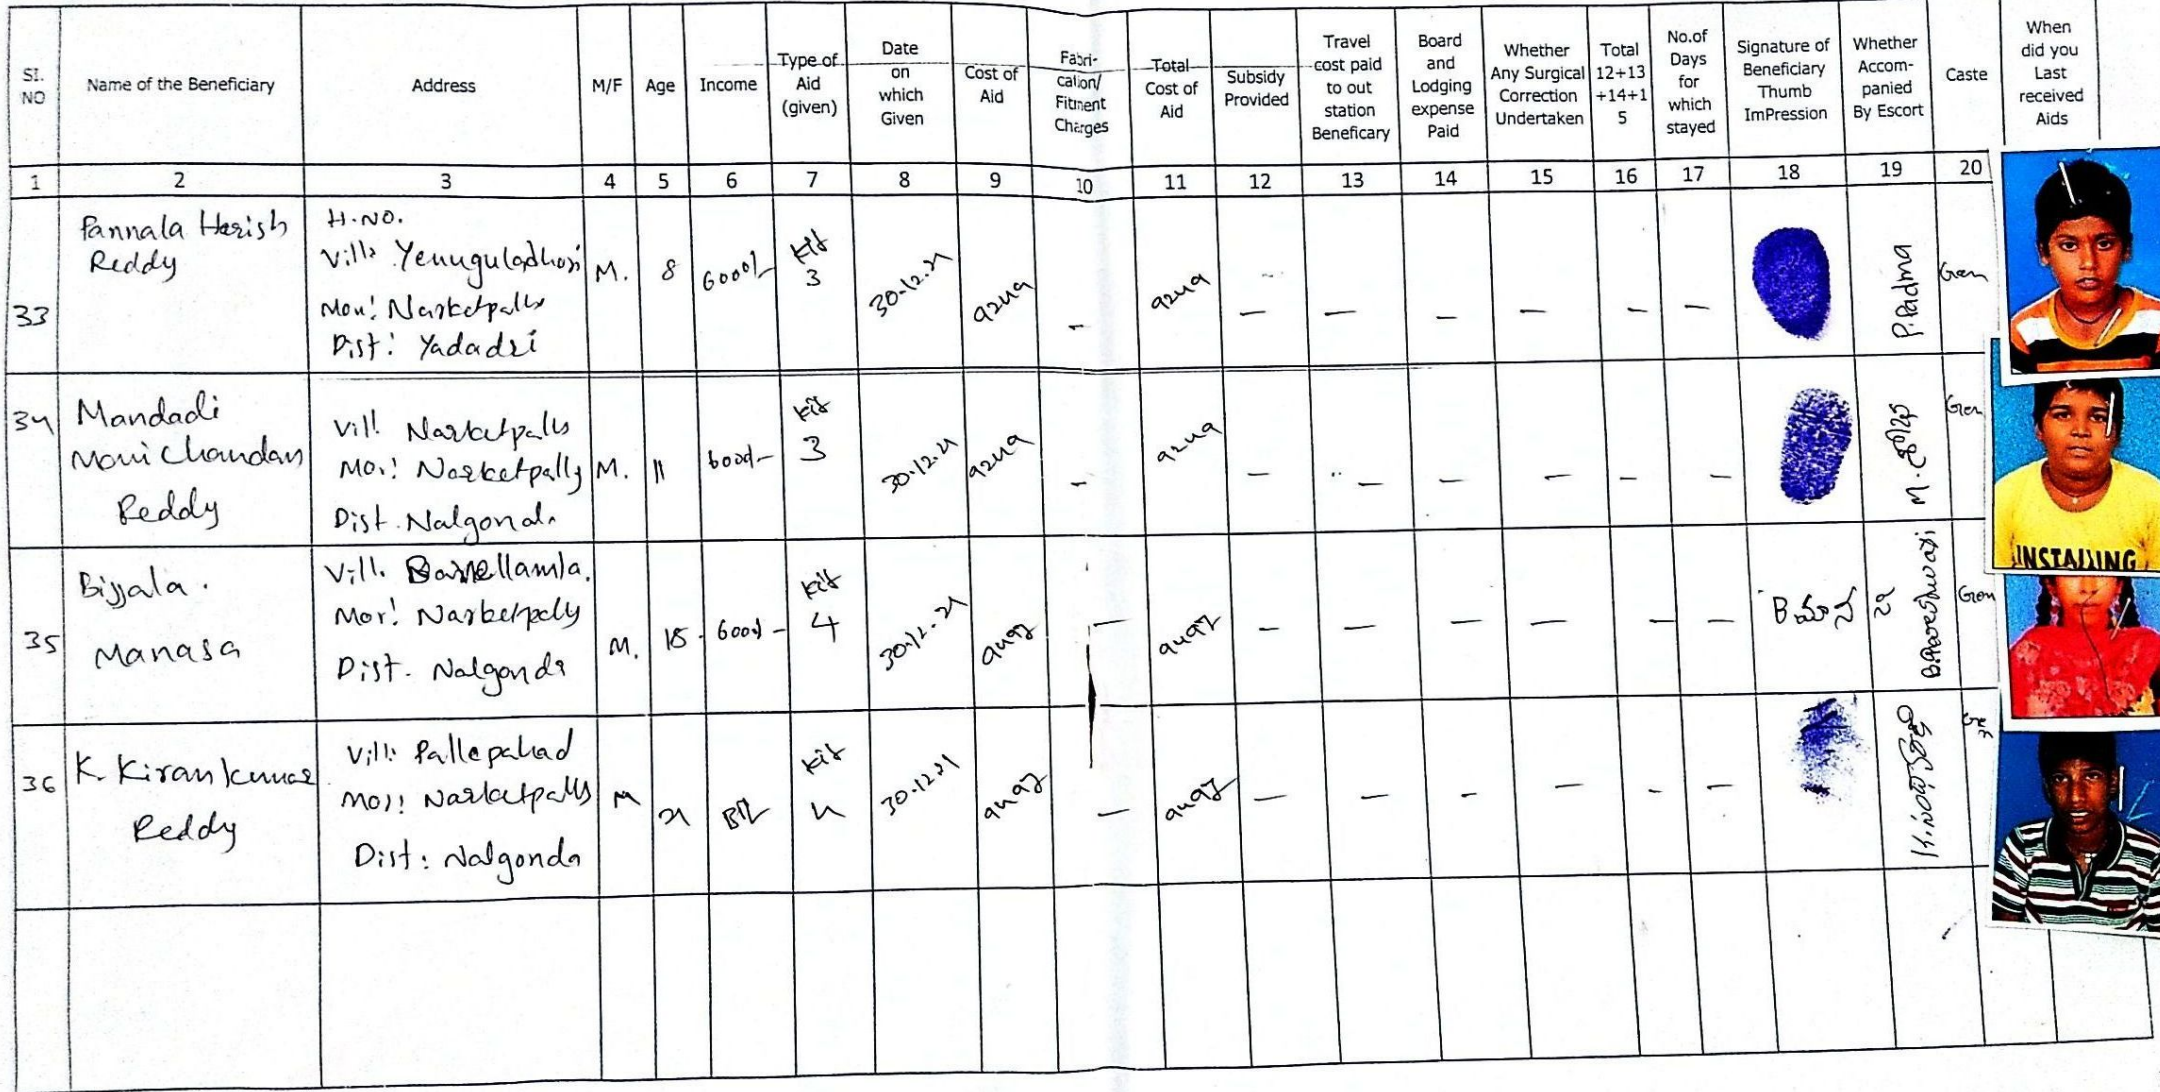 Sl. NO | Name of the Beneficiary | Address | M/F | Age | Income | Type of Aid (given) | Date on which Given | Cost of Aid | Fabri-cation/ Fitment Charges | Total Cost of Aid | Subsidy Provided | Travel cost paid to out station Beneficary | Board and Lodging expense Paid | Whether Any Surgical Correction Undertaken | Total 12+13+14+15 | No.of Days for which stayed | Signature of Beneficiary Thumb ImPression | Whether Accom-panied By Escort | Caste | When did you Last received Aids
1 2 3 4 5 6 7 8 9 10 11 12 13 14 15 16 17 18 19 20
33 Pannala Harish Reddy
H.NO.
Vill:
Mon: Narketpally
Dist: Yadadri
M. 8 6000/- kit 3 30.12.21 9249 – 9249 – – – – – – P. Padma Gen
34 Mandadi Moni Chandan Reddy
Vill: Narketpally
Mon: Narketpally
Dist. Nalgonda
M. 11 6000/- kit 3 30.12.21 9249 – 9249 – – – – – – M. Gen
35 Bijjala. Manasa
Vill.
Mon: Narketpally
Dist. Nalgonda
M. 18 6000/- kit 4 30.12.21 – – – – – – – B మానస Gen
36 K. Kiran kumar Reddy
Vill: Pallepahad
Mon: Narketpally
Dist: Nalgonda
M 21 kit 4 30.12.21 – – – – – – – K.
INSTALLING